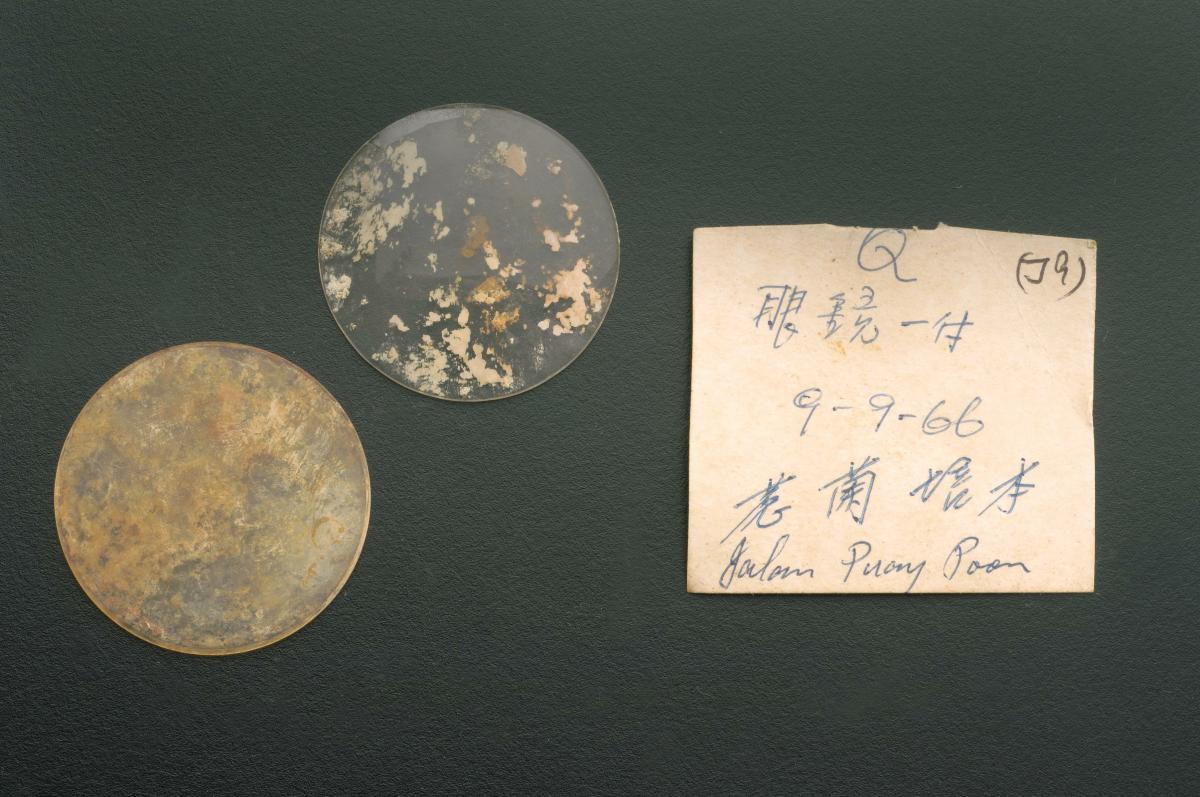 Q (J9)
眼鏡一付
9-9-66
惹蘭培本
Jalan Puay Poon